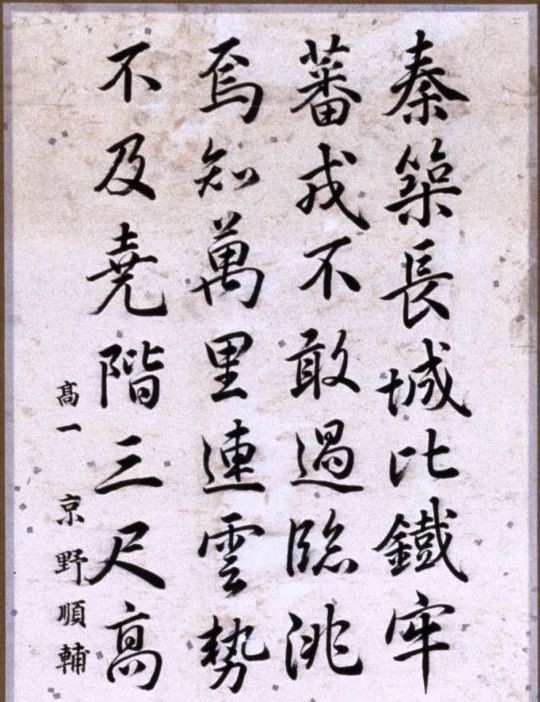 秦築長城比鐵牢
蕃戎不敢過臨洮
焉知萬里連雲勢
不及堯階三尺高
高一 京野順輔